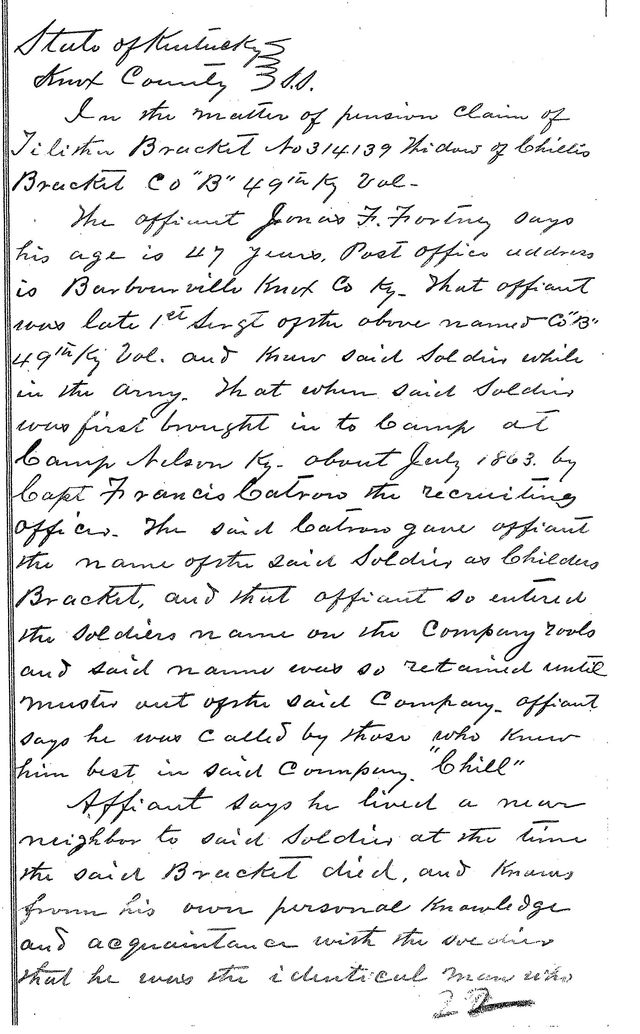 State of Kentucky
Knox County } S.S.
In the matter of pension claim of
Tilitha Bracket No 314139 Widow of Chillis
Bracket Co "B" 49th Ky Vol-
The affiant Jonas F. Fortney says
his age is 47 years, Post office address
is Barbourville Knox Co Ky- That affiant
was late 1st Sergt of the above named Co "B"
49th Ky Vol. and knew said Soldier while
in the army. That when said Soldier
was first brought in to Camp at
Camp Nelson Ky- about July 1863. by
Capt Francis Catron the recruiting
officer. The said Catron gave affiant
the name of the said Soldier as Childers
Bracket, and that affiant so entered
the soldiers name on the Company rools
and said name was so retained until
muster out of the said Company- affiant
says he was called by those who knew
him best in said Company. "Chill"
Affiant says he lived a near
neighbor to said Soldier at the time
the said Bracket died, and knows
from his own personal knowledge
and acquaintance with the soldier
that he was the identical man who
22